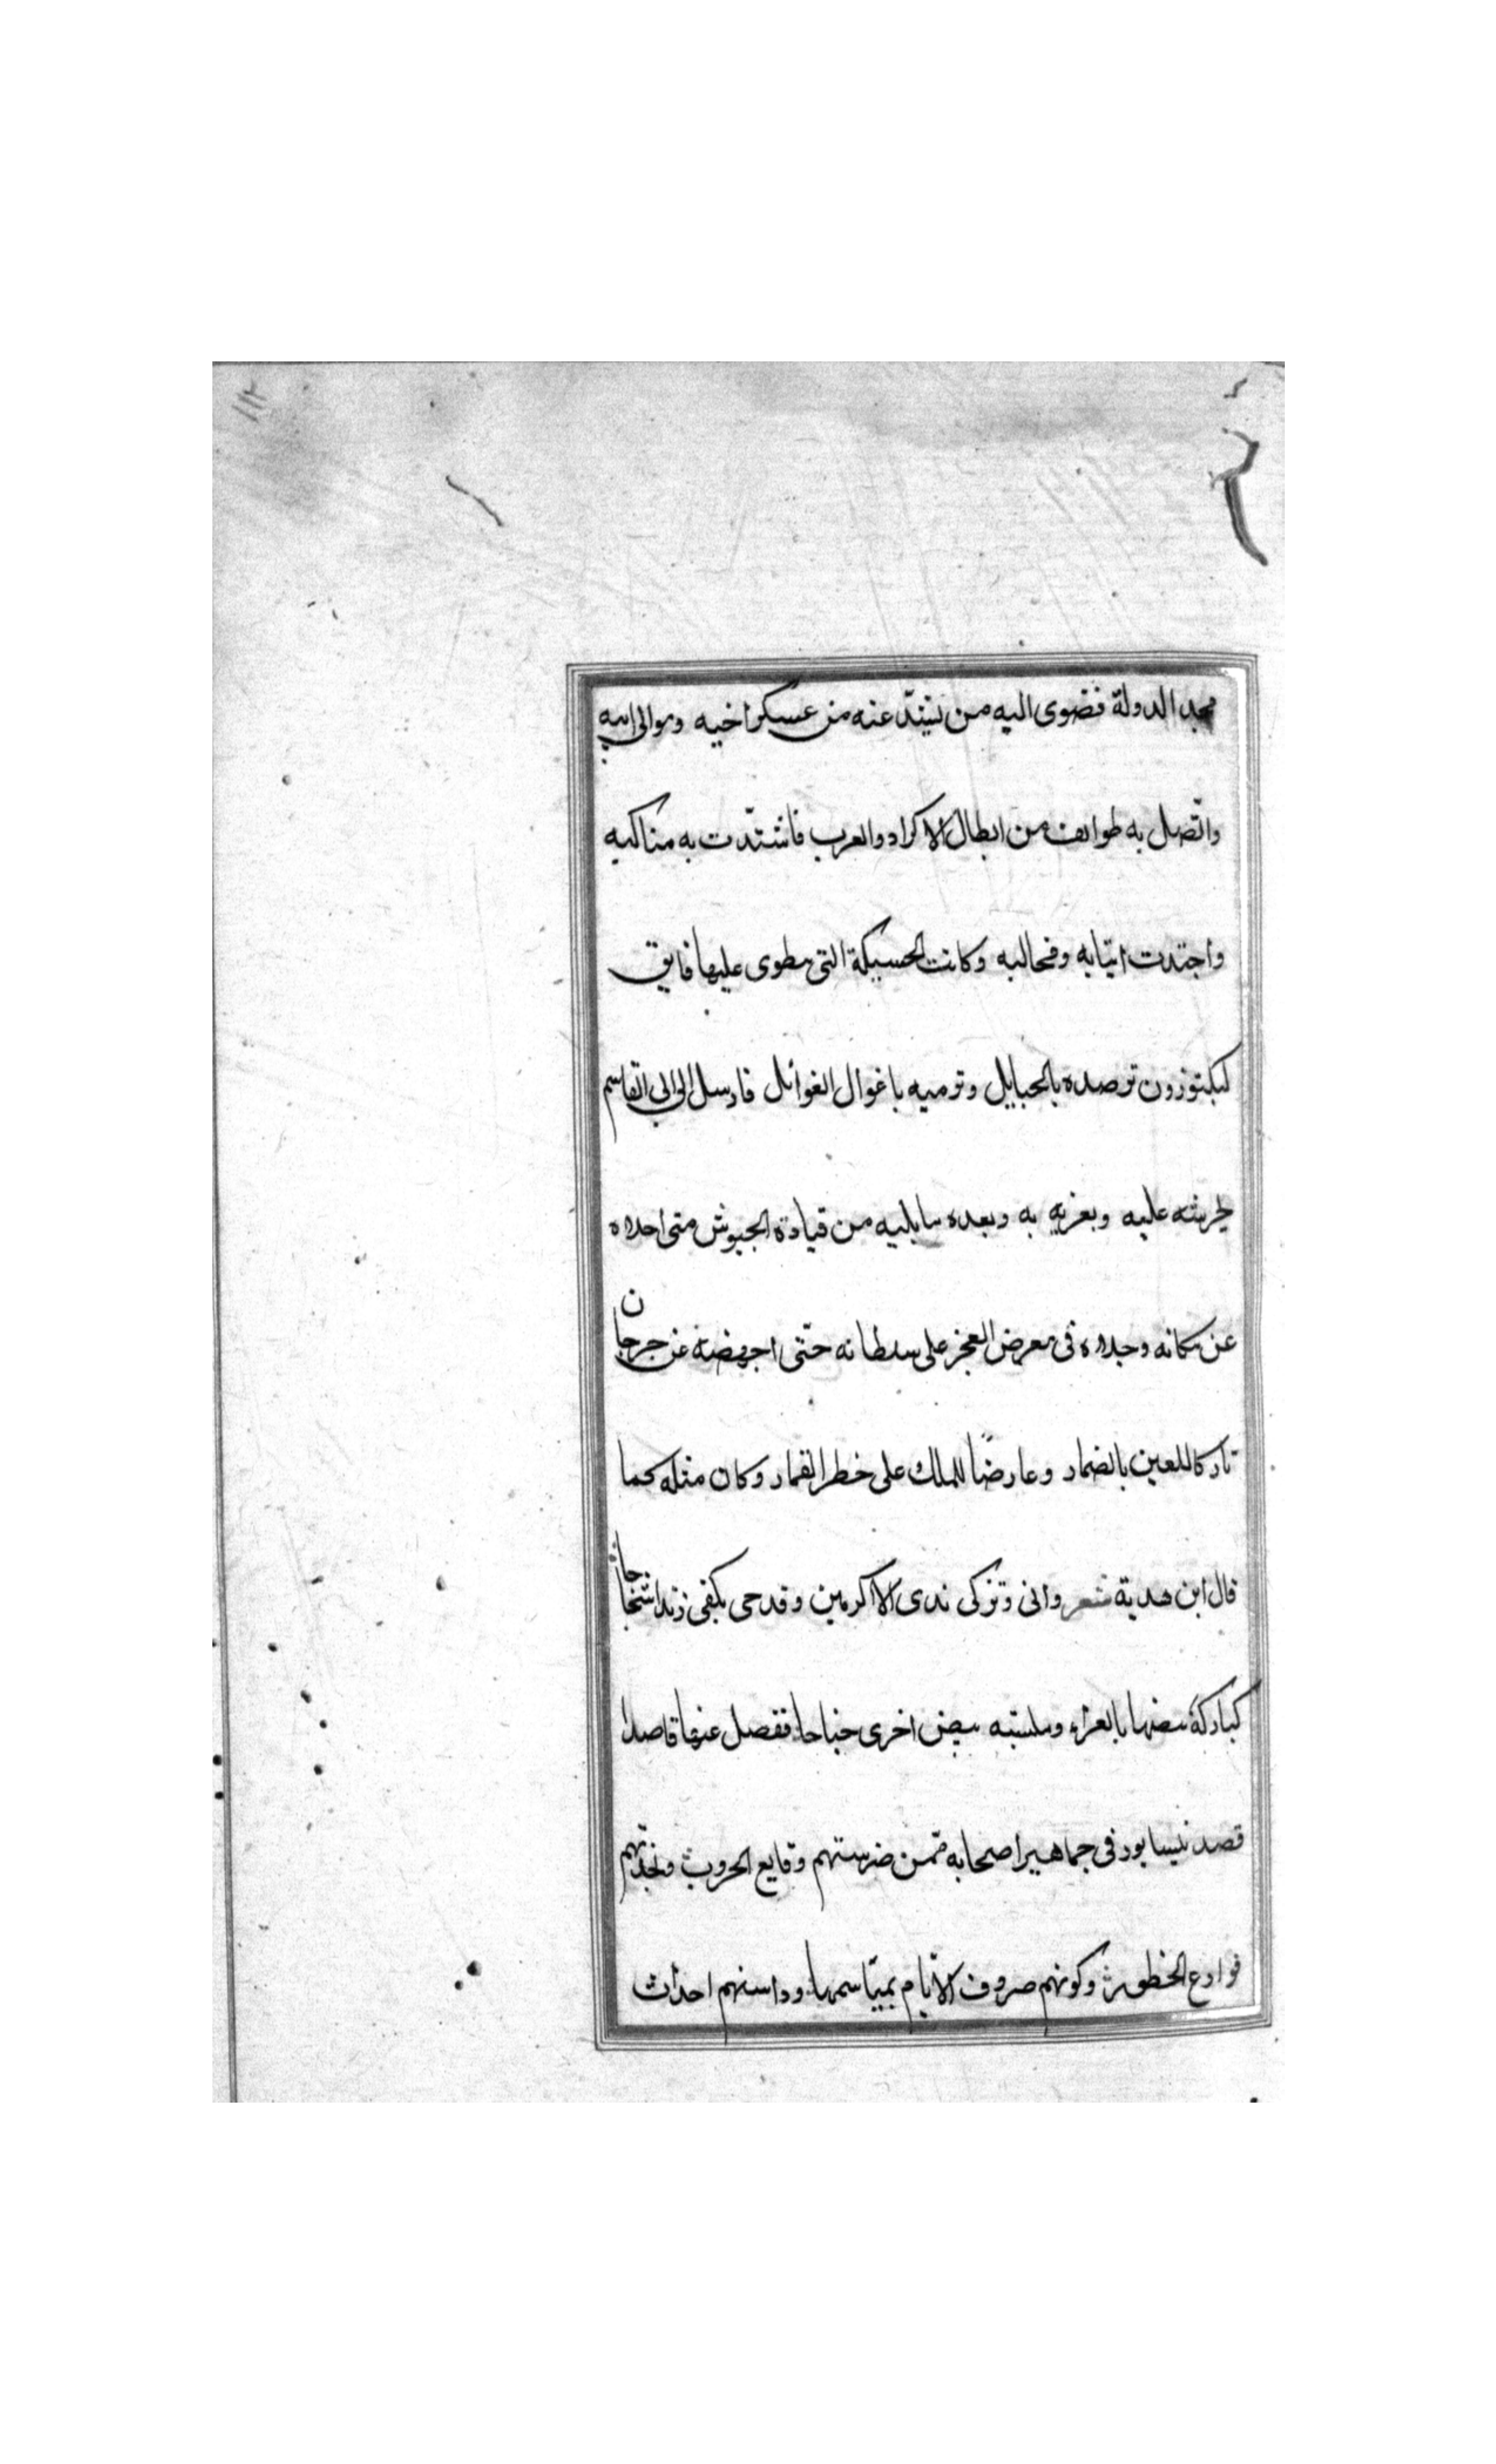 ١١٢
مجد الدولة فضوى اليه من تشتذّ عنه من عسكر اخيه وموالى ابيه
واتّصل به طوايف من ابطال الاكراد والعرب فاشتدّت به مناكبه
واحتدت انيابه ومخالبه وكانت الحسيكة التى ينطوى عليها فايق
لبكتوزون ترصده بالحبايل وترميه باغوال الغوائل فارسل الى ابى القاسم
يحرشه عليه ويغريه به ويعده ما يليه من قيادة الجيوش متى اجلاه
عن مكانه وجلاه فى معرض العجز على سلطانه حتّى اجهضه عن جرجان
تاركا للعين بالضمار وعارضًا للملك على خطر القمار وكان مثله كما
قال ابن هدبة شعر وانى وتركى ندى الاكرمين وقدحى بكفى زندا شحاحا
كتاركة بيضها بالعراء وملبسة بيض اخرى جناحا ففصل عنها قاصدا
قصد نيسابور فى جماهير اصحابه ممّن ضرستهم وقايع الحروب ونجذتهم
قوارع الخطوب وكوتهم صروف الايّام بمياسمها وداستهم احداث